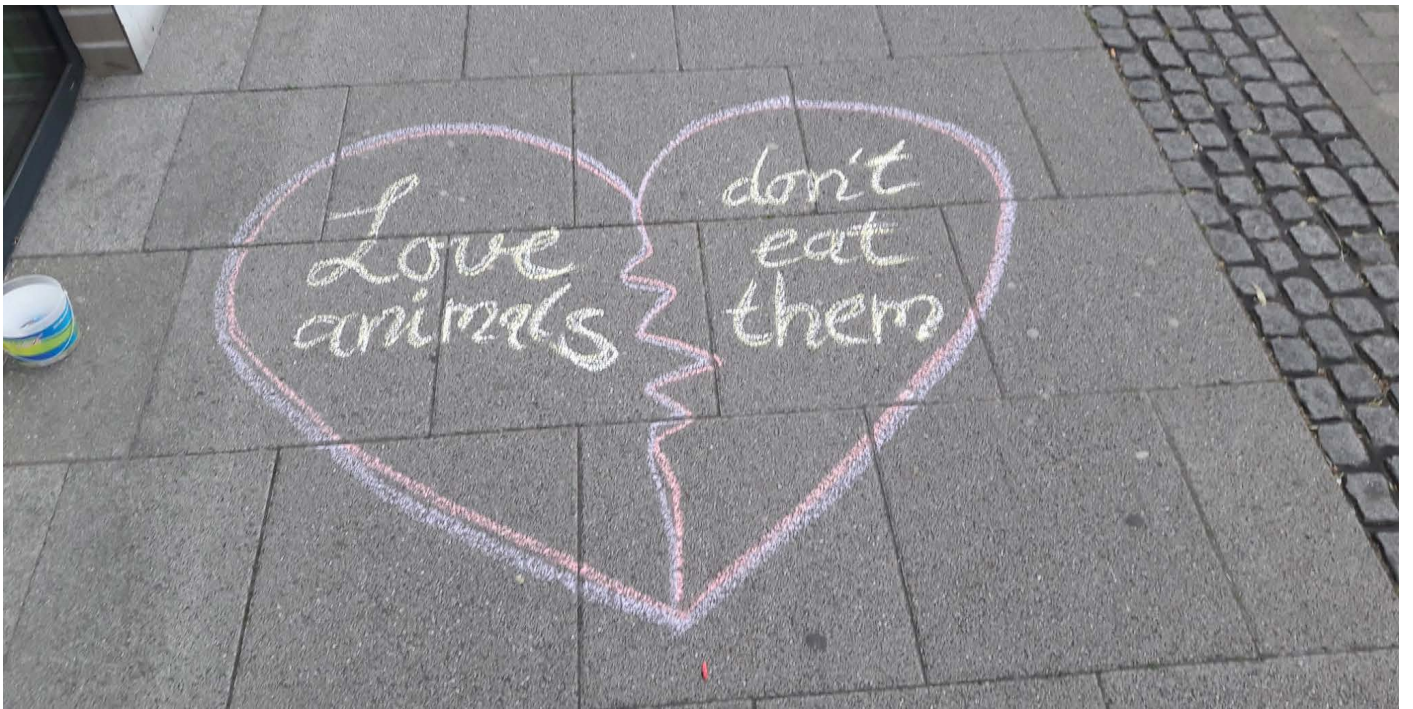 Love
animals
don't
eat
them